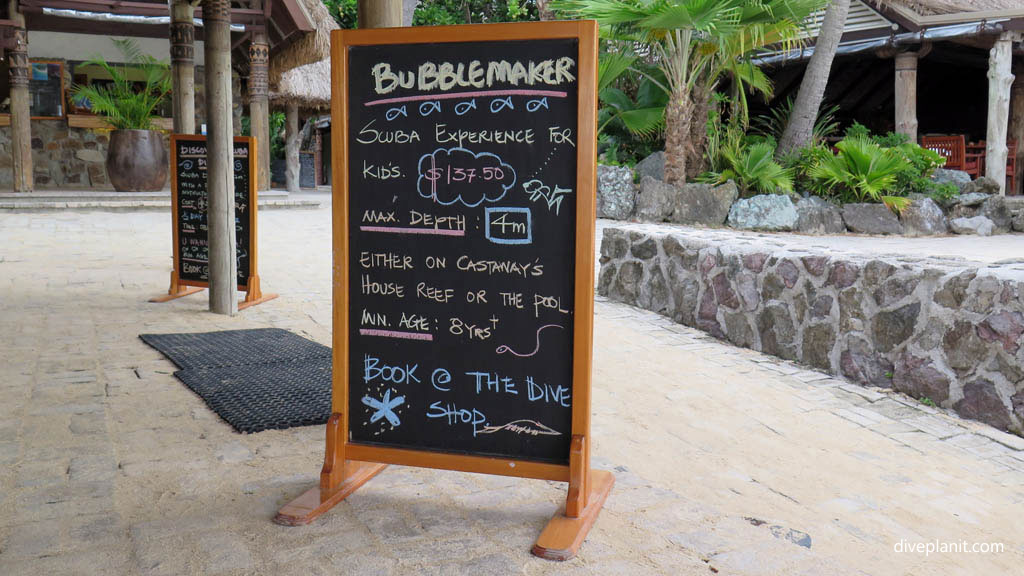 BUBBLEMAKER
SCUBA EXPERIENCE FOR
KIDS. $137.50
MAX. DEPTH : 4m
EITHER ON CASTAWAY'S
HOUSE REEF OR THE POOL.
MIN. AGE: 8YRS+
BOOK @ THE DIVE
SHOP
DISCOVER SCUBA
½ DAY
BOOK @
diveplanit.com